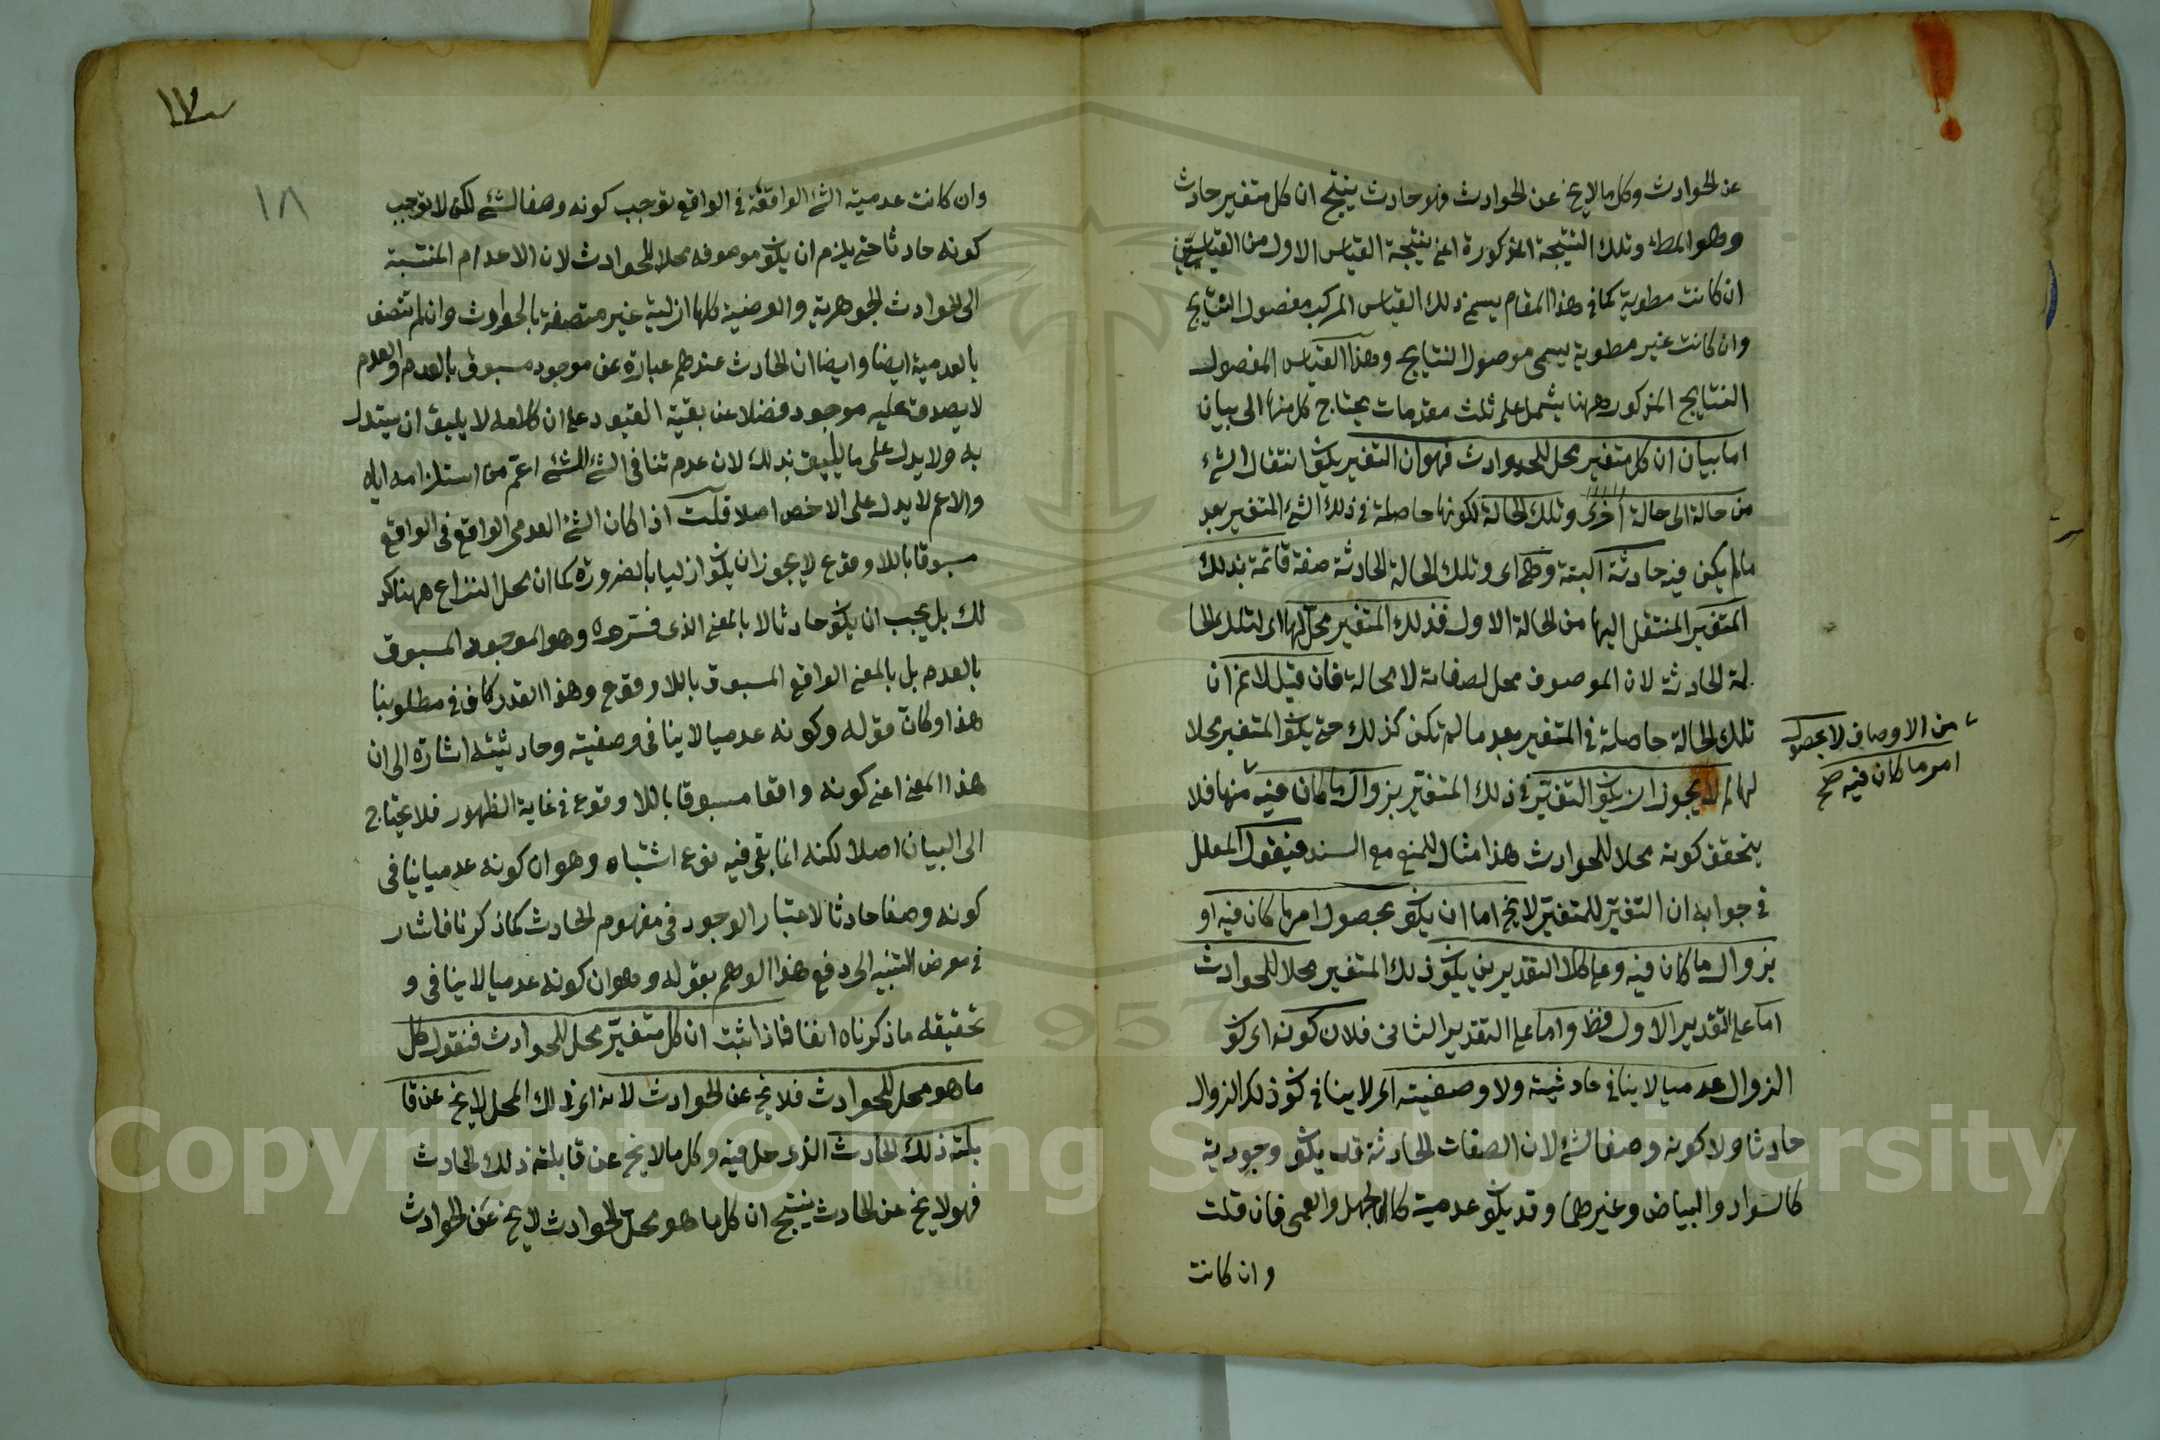 عن الحوادث وكل ما لايخ عن الحوادث فهو حادث ينتج ان كل متغير حادث
وهو المط وتلك النتيجة المذكورة اعنى نتيجة القياس الاول من القياسين
ان كانت مطوية كما فى هذا المقام يسمى ذلك القياس المركب مفصول النتايج
وان كانت غير مطوية يسمى موصول النتايج وهذا القياس المفصول
النتايج المذكور ههنا يشمل على ثلث مقدمات يحتاج كل منها الى بيان
اما بيان ان كل متغير محل للحوادث فهو ان التغير يكون انتقال الشئ
من حالة الى حالة اخرى وتلك الحالة لكونها حاصلة فى ذلك الشئ المتغير بعد
ما لم يكن فيه حادثة البتة وهى اى وتلك الحالة الحادثة صفة قائمة بذلك
المتغير المنتقل اليها من الحالة الاولى فذلك المتغير محل لها اى لتلك الحا
لة الحادثة لان الموصوف محل لصفاته لا محالة فان قيل لانم ان
تلك الحالة حاصلة فى المتغير بعد ما لم تكن كذلك حتى يكون المتغير محلا
لها لم لا يجوز ان يكون التغير فى ذلك المتغير بزوال ما كان فيه منها فلا
من الاوصاف لا بحصول
امر ما كان فيه صح
يتحقق كونه محلا للحوادث هذا مثال للمنع مع السند فيقول المعلل
فى جوابه ان التغير للمتغير لايخ اما ان يكون بحصول امر ما كان فيه او
بزوال ما كان فيه وعلى كلا التقديرين يكون ذلك المتغير محلا للحوادث
اما على التقدير الاول فظ واما على التقدير الثانى فلان كونه اى كون
الزوال عدميا لا ينافى حادثيته ولا وصفيته اى لا ينافى كون ذلك الزوال
حادثا ولا كونه وصفا لشئ لان الصفات الحادثة قد يكون وجودية
كالسواد والبياض وغيرهما وقد يكون عدمية كالجهل والعمى فان قلت
وان كانت
١٧
١٨
وان كانت عدمية الشئ الواقعة فى الواقع توجب كونه وصفا لشئ لكن لا توجب
كونه حادثا حتى يلزم ان يكون موصوفه محلا للحوادث لان الاعدام المنتسبة
الى الحوادث الجوهرية والعرضية كلها ازلية غير متصفة بالحدوث وان لم تتصف
بالعدمية ايضا وايضا ان الحادث عندهم عبارة عن موجود مسبوق بالعدم والعدم
لا يصدق عليه موجود فضلا عن بقية القيود على ان كلامه لا يليق ان يستدل
به ولا يدل على ما يليق بذلك لان عدم تنافى الشئ للشئ اعم من استلزامه اياه
والاعم لا يدل على الاخص اصلا قلت اذا كان الشئ العدمى الواقع فى الواقع
مسبوقا باللاوقوع لا يجوز ان يكون ازليا بالضرورة كما ان محل النزاع ههنا كذ
لك بل يجب ان يكون حادثا لا بالمعنى الذى فسره وهو الموجود المسبوق
بالعدم بل بالمعنى الواقع المسبوق باللاوقوع وهذا القدر كاف فى مطلوبنا
هذا وكان قوله وكونه عدميا لا ينافى وصفيته وحادثيته اشارة الى ان
هذا المعنى اعنى كونه واقعا مسبوقا باللاوقوع فى غاية الظهور فلا يحتاج
الى البيان اصلا لكنه انما بقى فيه نوع اشتباه وهو ان كونه عدميا ينافى
كونه وصفا حادثا لاعتبار الوجود فى مفهوم الحادث كما ذكرنا فاشار
فى معرض التنبيه الى دفع هذا الوهم بقوله وهو ان كونه عدميا لا ينافى و
تحقيقه ما ذكرناه انفا فاذا ثبت ان كل متغير محل للحوادث فنقول كل
ما هو محل للحوادث فلا يخ عن الحوادث لانه اى ذلك المحل لايخ عن قا
بلته ذلك الحادث الذى حل فيه وكل ما لايخ عن قابلته ذلك الحادث
فهو لايخ عن الحادث ينتج ان كل ما هو محل للحوادث لايخ عن الحوادث
Copyright © King Saud University
1957